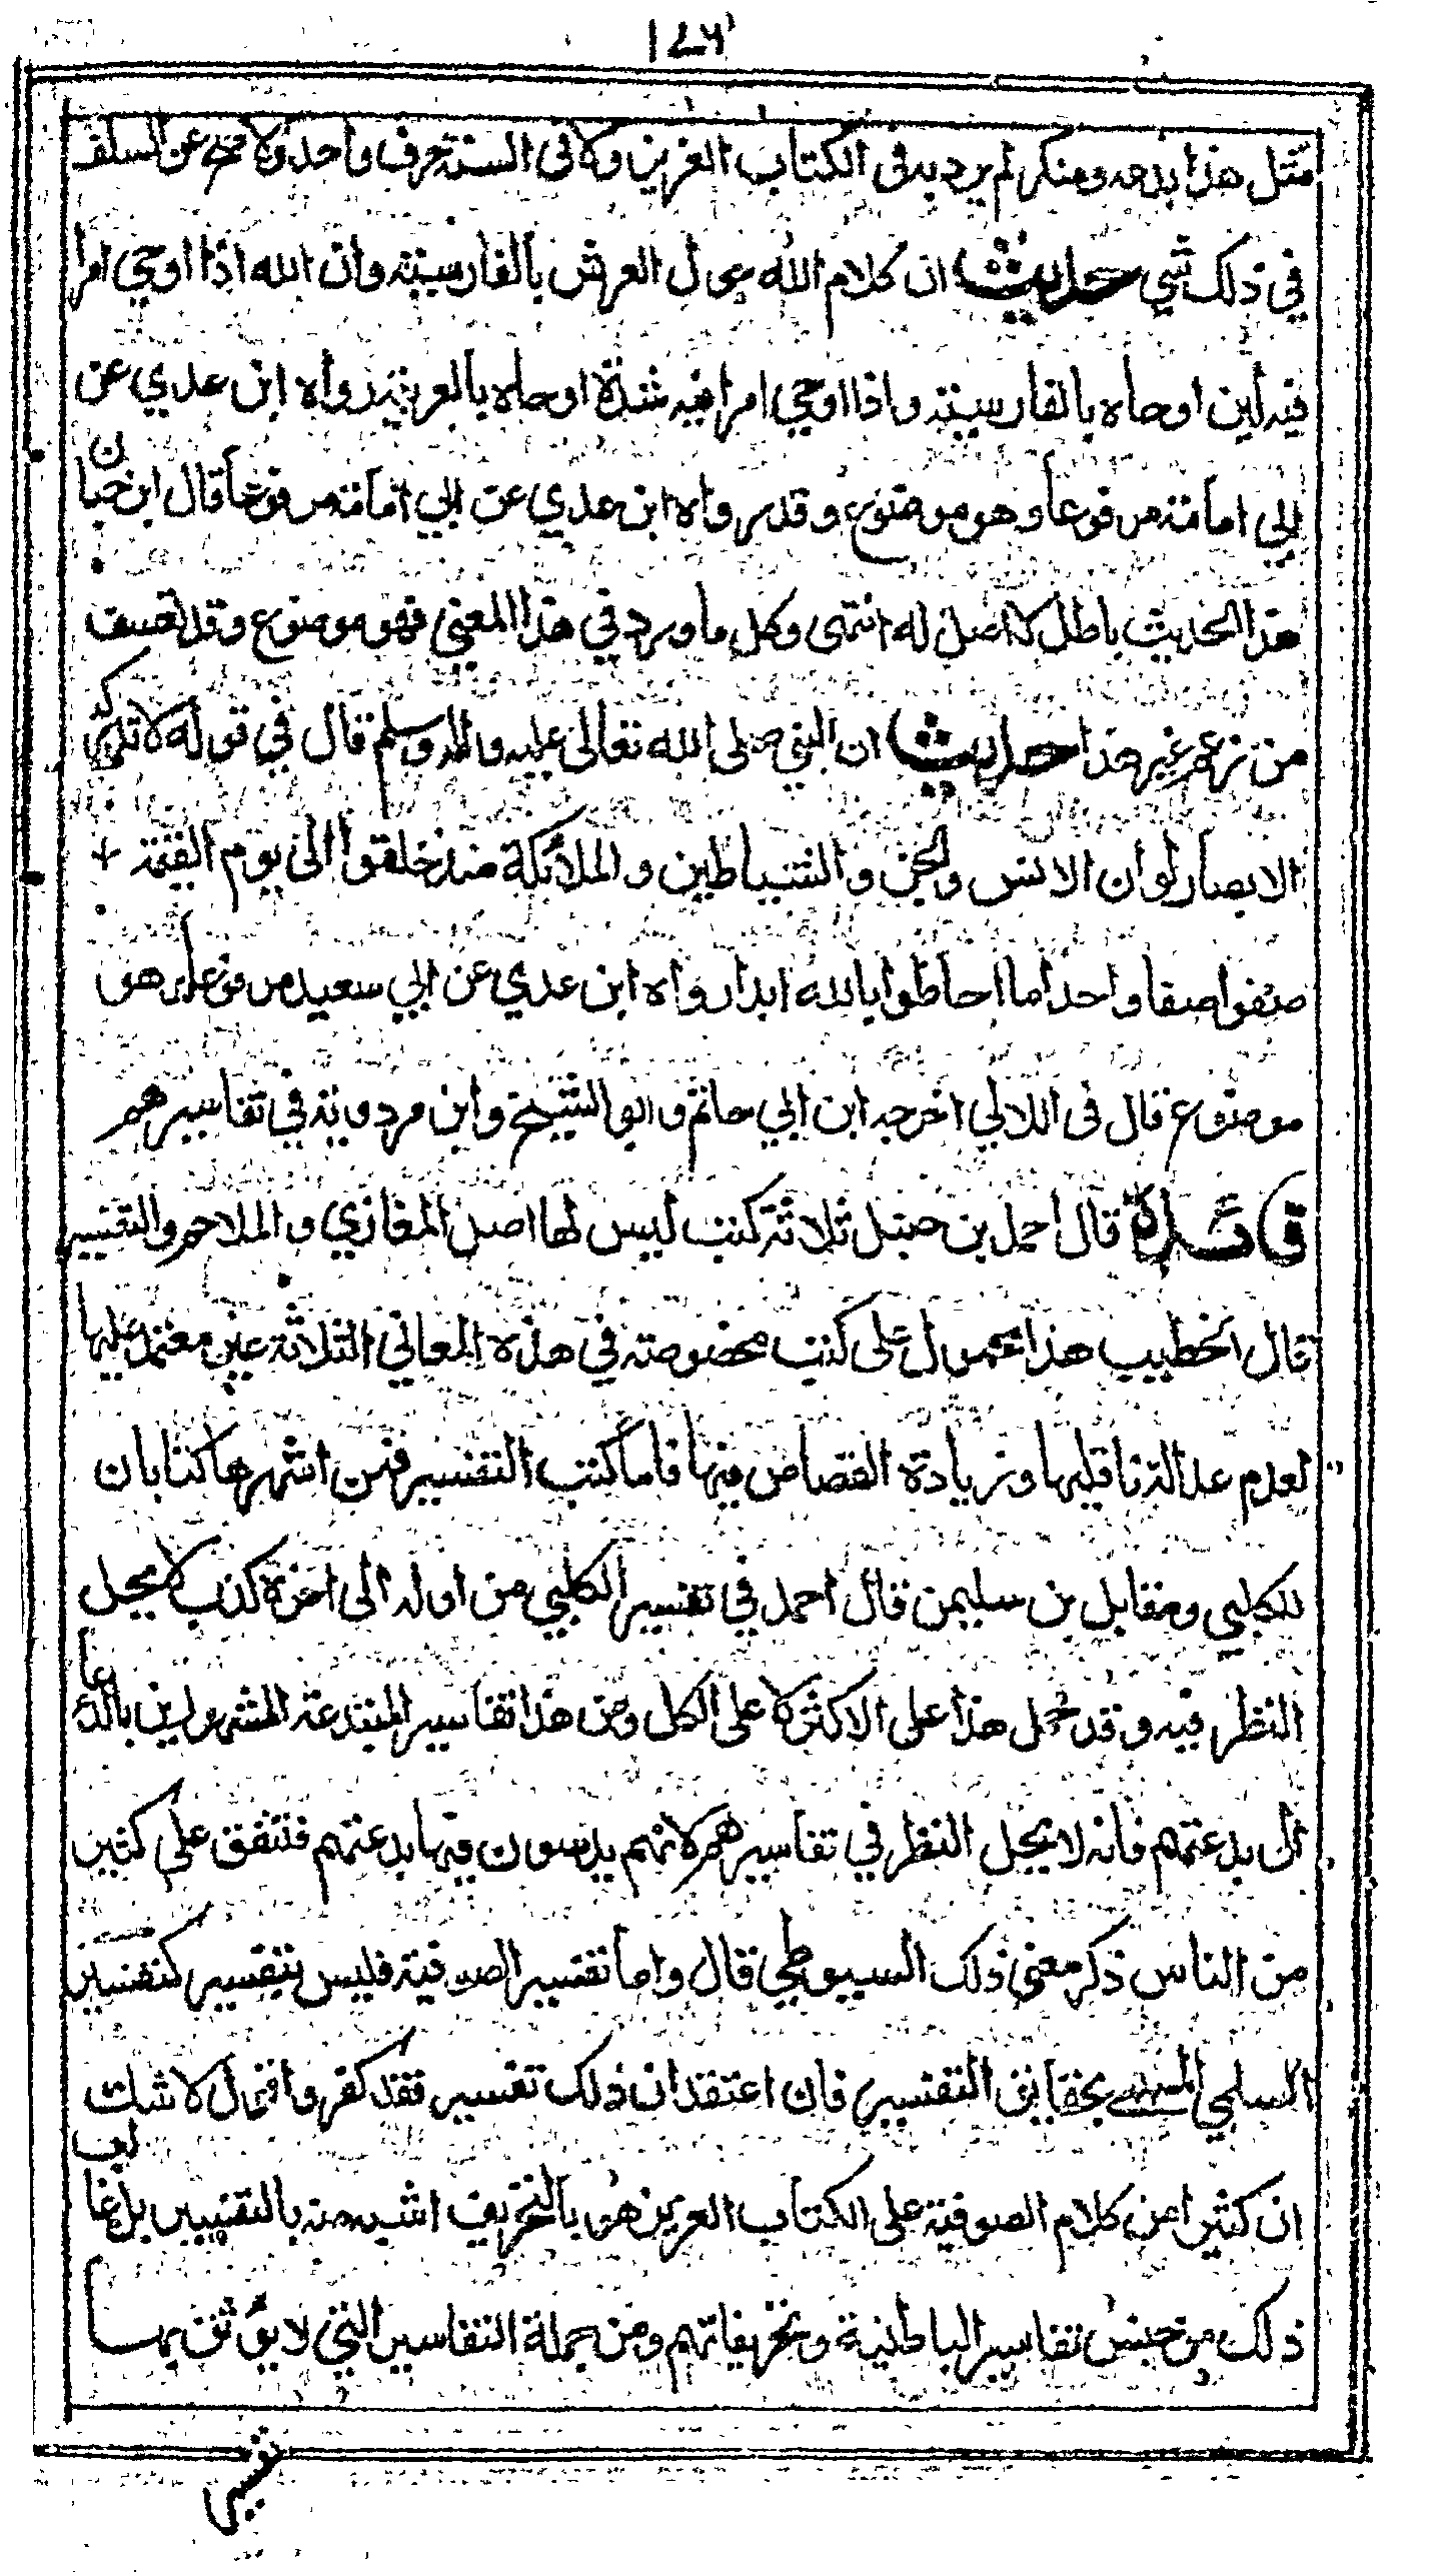 ١٤٥
مثل هذا بدعه ومنكر لم يرد به فى الكتاب العزيز ولا فى السنة حرف واحد ولا صح عن السلف
في ذلك شي حديث ان كلام الله حول العرش بالفارسية وان الله اذا اوحي امرا
فيه لين اوحاه بالفارسية واذا اوحي امرا فيه شدة اوحاه بالعربية رواه ابن عدي عن
ابي امامة مرفوعا وهو موضوع وقد رواه ابن عدي عن ابي امامة مرفوعا قال ابن حبان
هذا الحديث باطل لا اصل له انتهى وكل ما ورد في هذا المعني فهو موضوع وقد تعسف
من زعم غير هذا حديث ان النبي صلى الله تعالى عليه واله وسلم قال في قوله لا تدركه
الابصار لو ان الانس والجن والشياطين والملائكة منذ خلقوا الى يوم القيمة
صفوا صفا واحدا ما احاطوا بالله ابدا رواه ابن عدي عن ابي سعيد مرفوعا وهو
موضوع قال فى اللالي اخرجه ابن ابي حاتم وابو الشيخ وابن مردويه في تفاسيرهم
فائدة قال احمد بن حنبل ثلاثة كتب ليس لها اصل المغازي والملاحم والتفسير
قال الخطيب هذا محمول على كتب مخصوصة في هذه المعاني الثلاثة غير معتمد عليها
لعدم عدالة ناقليها وزيادة القصاص فيها فاما كتب التفسير فمن اشهرها كتابان
للكلبي ومقابل بن سليمن قال احمد في تفسير الكلبي من اوله الى اخره كذب لا يحل
النظر فيه وقد حمل هذا على الاكثر لا على الكل ومن هذا تفاسير المبتدعة المشهورين بالدعا
الى بدعتهم فانه لا يحل النظر في تفاسيرهم لانهم يدسون فيها بدعتهم فتنفق على كثير
من الناس ذكر معنى ذلك السيوطي قال واما تفسير الصوفية فليس بتفسير كتفسير
السلمي المسمى بحقايق التفسير فان اعتقد ان ذلك تفسير فقد كفر واقول لا شك
ان كثيرا من كلام الصوفية على الكتاب العزيز هو بالتحريف اشبه منه بالتفسير بل غالب
ذلك من جنس تفاسير الباطنية وتحريفاتهم ومن جملة التفاسير التي لا يوثق بها
تفسير